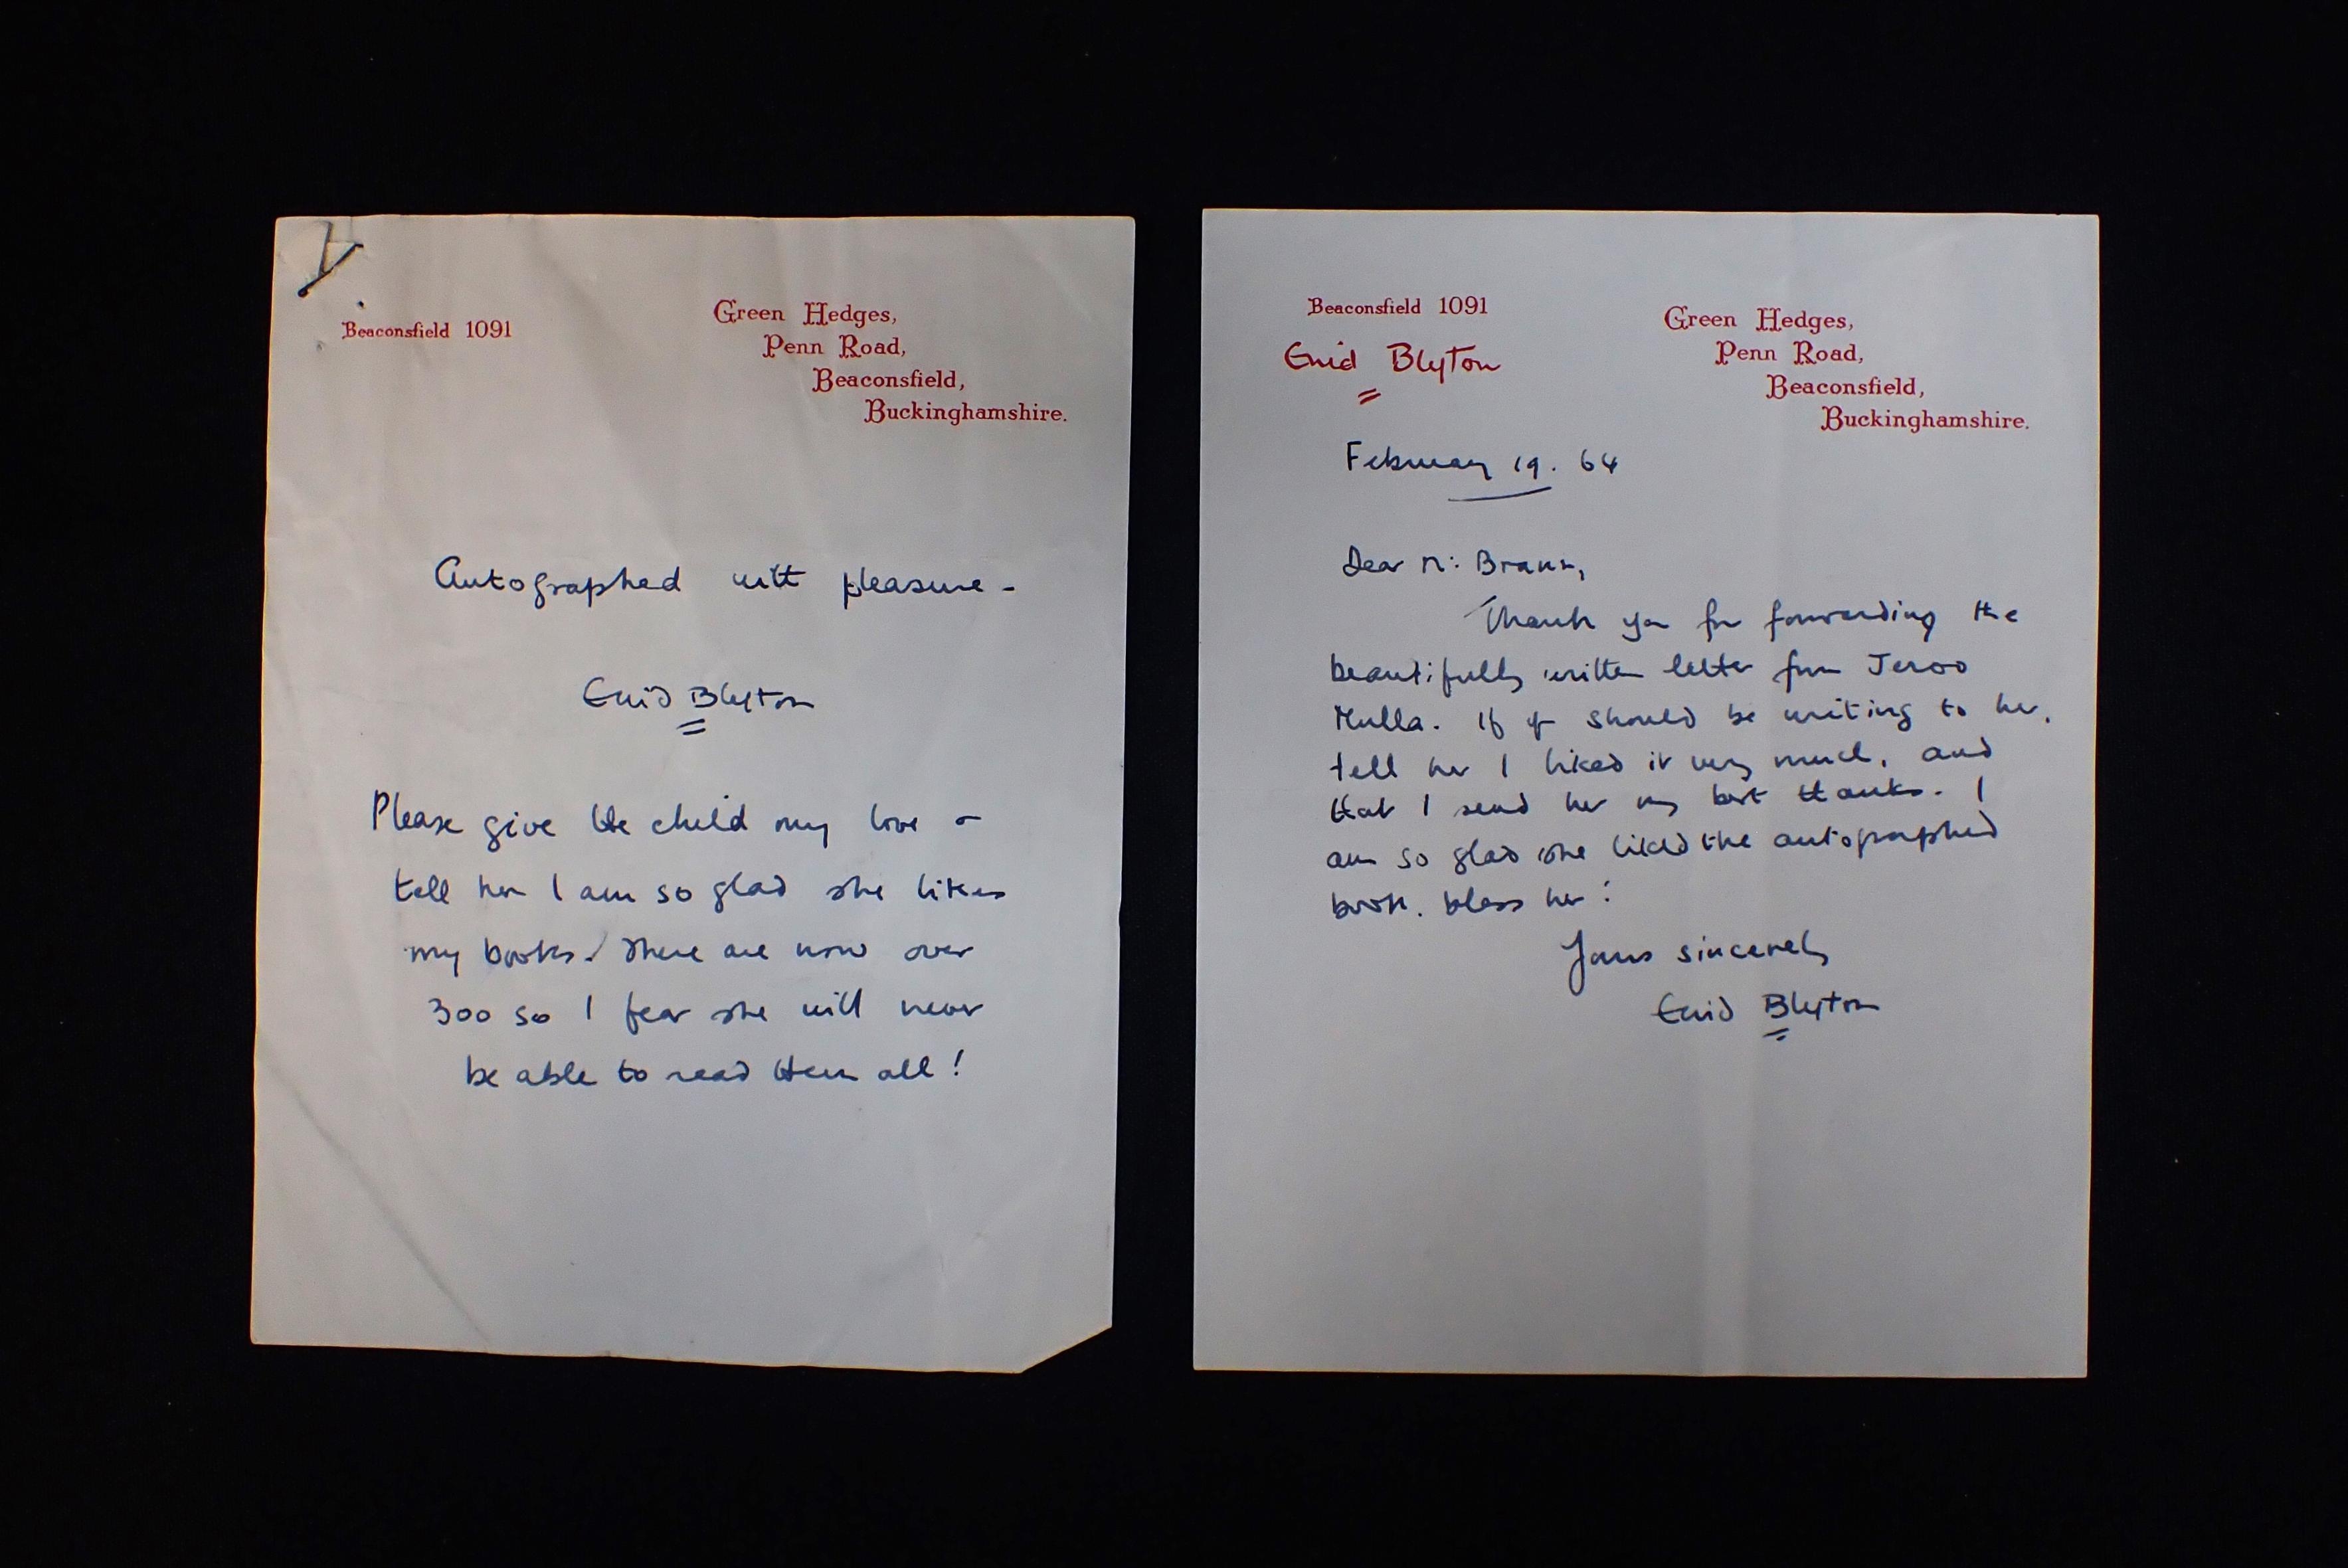 Beaconsfield 1091
Green Hedges,
Penn Road,
Beaconsfield,
Buckinghamshire.
Autographed with pleasure -
Enid Blyton
Please give the child my love &
tell her I am so glad she likes
my books. There are now over
300 so I fear she will never
be able to read them all!
Beaconsfield 1091
Enid Blyton
Green Hedges,
Penn Road,
Beaconsfield,
Buckinghamshire.
February 19. 64
Dear Mr:
Thank you for forwarding the
beautifully written letter from Jeroo
Mulla. If you should be writing to her,
tell her I liked it very much, and
that I send her my best thanks. I
am so glad she liked the autographed
book. bless her!
Yours sincerely
Enid Blyton